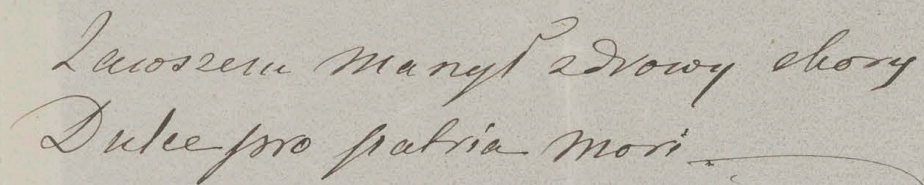 Zawszem marzył zdrowy chory
Dulce pro patria mori